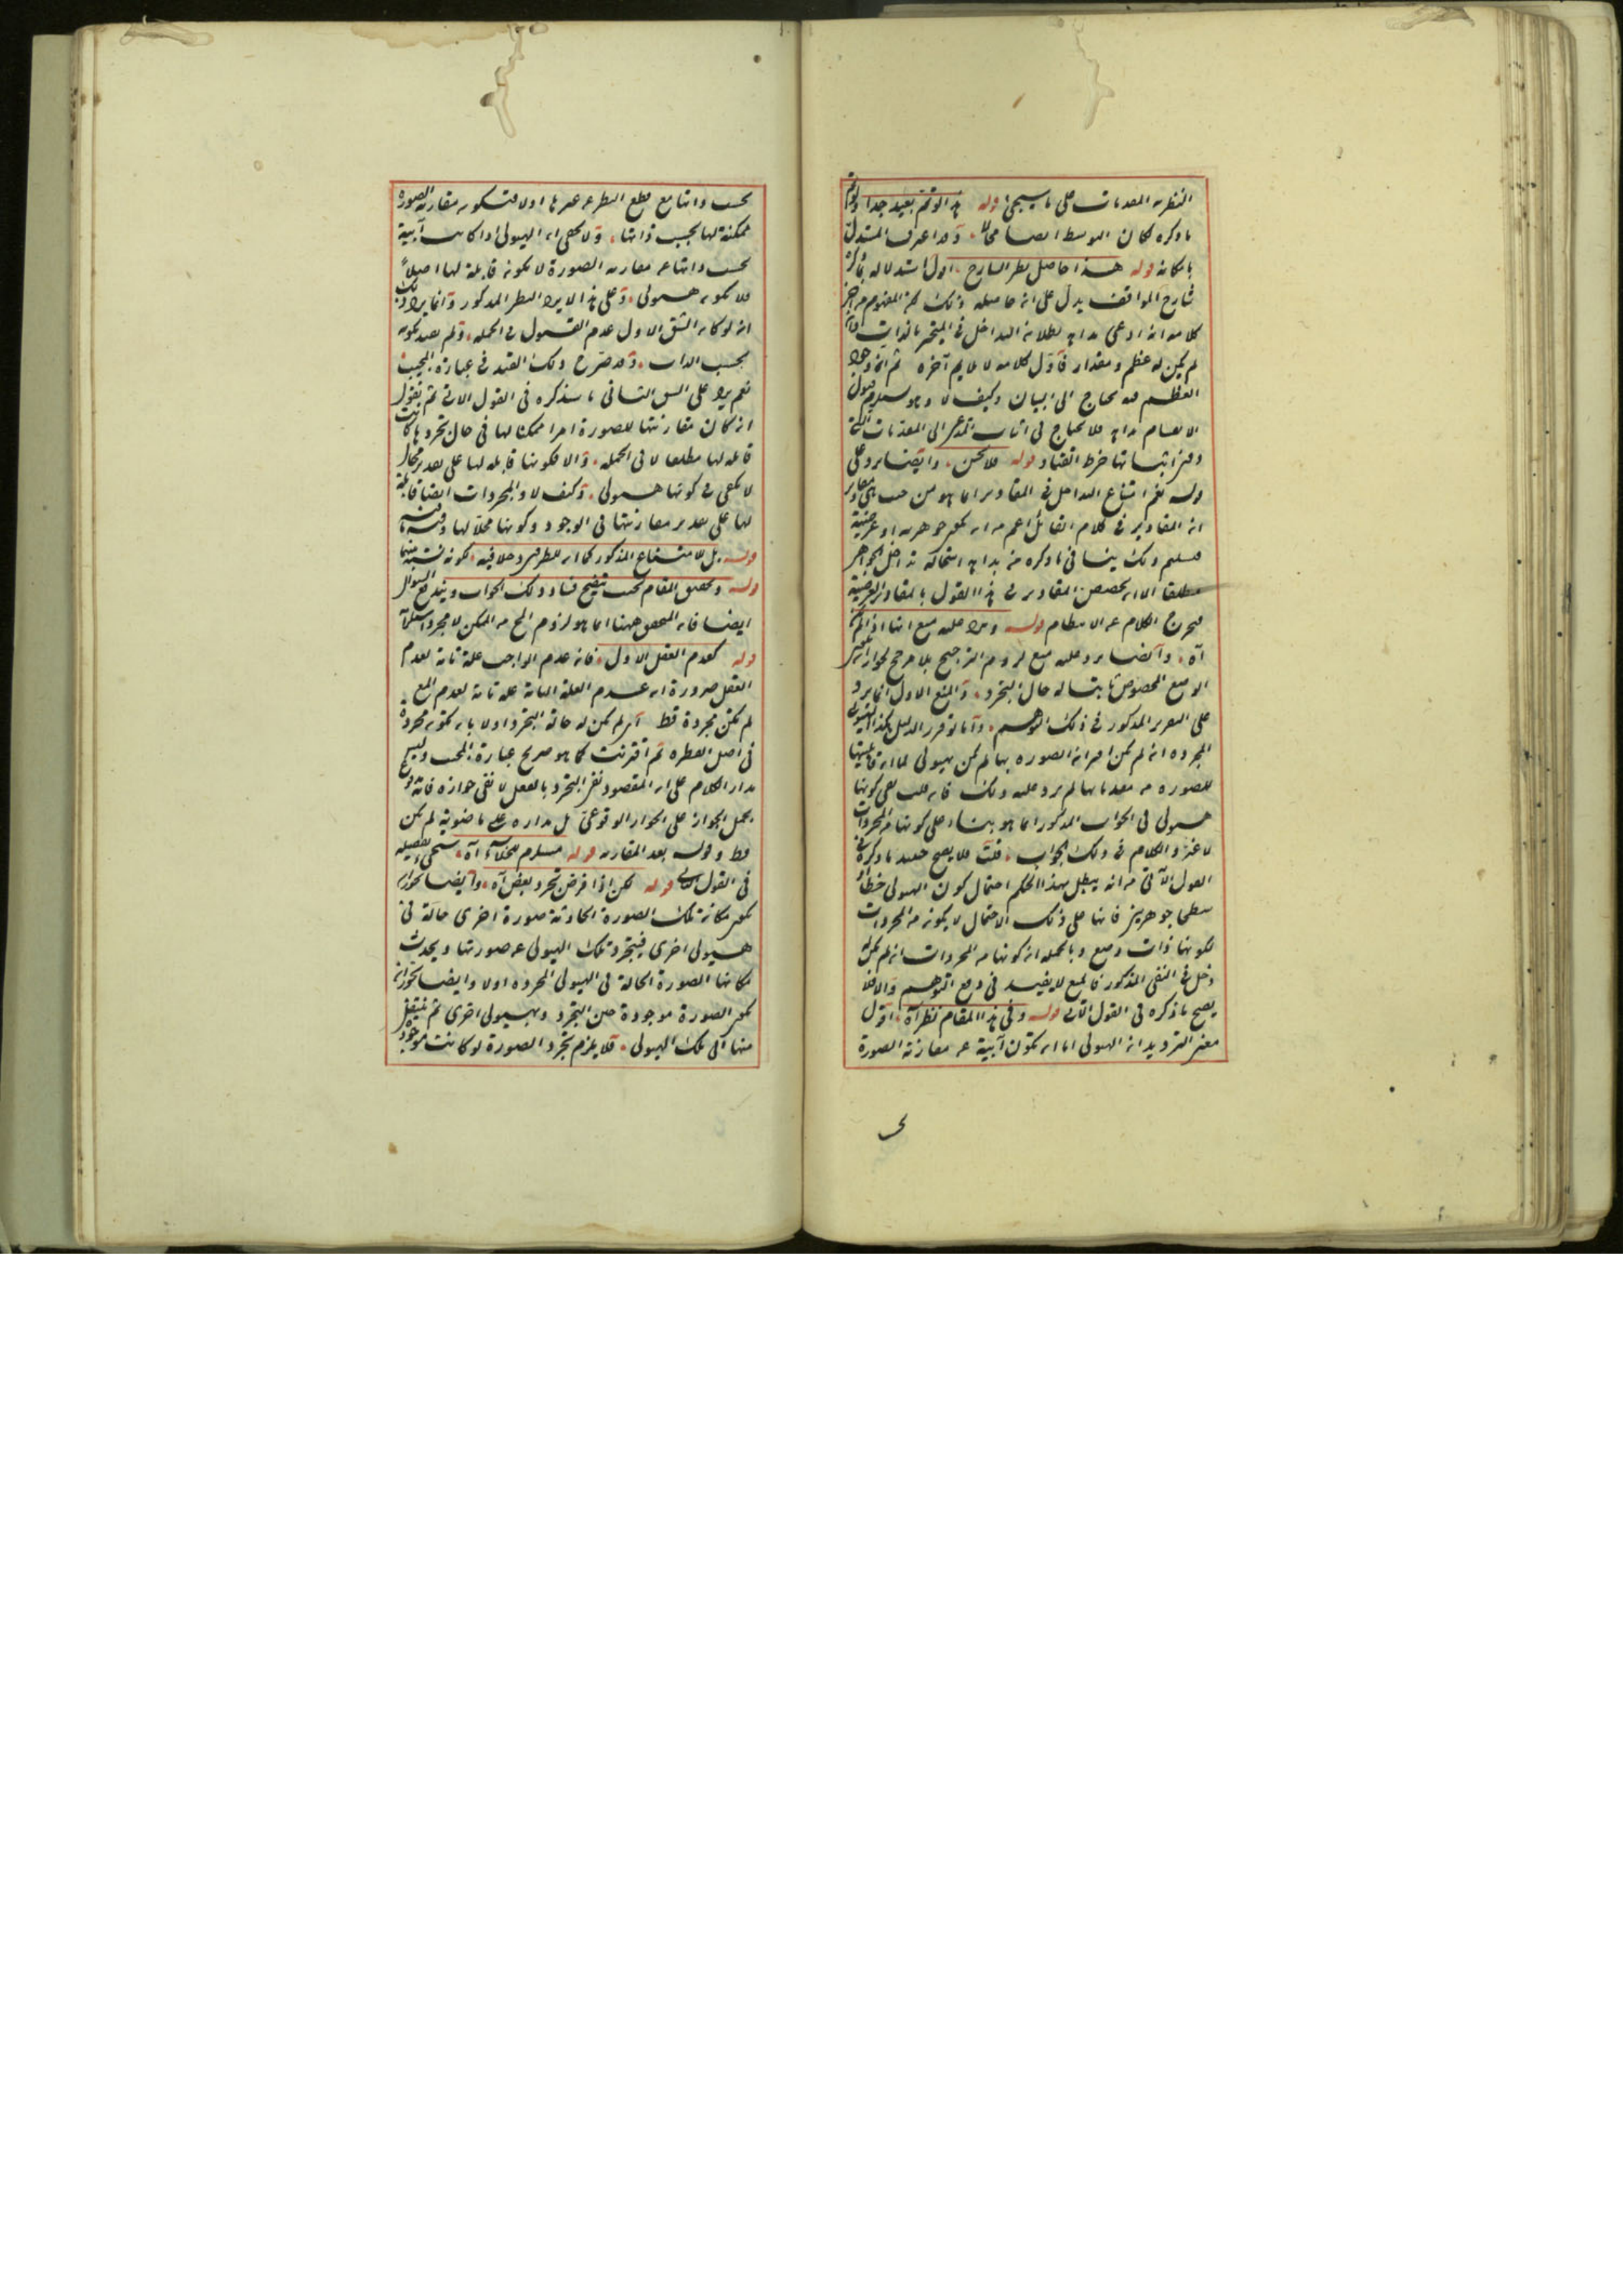 النظرية المقدمات على ما سيجئ قوله هذا التوهم بعيد جدا ولو تم
ما ذكره لكان الوسط ايضا محالا وقد اعترف المستدل
بامكانه قوله هذا حاصل نظر الشارح اقول استدلاله بما ذكره
شارح المواقف يدل على ان حاصله ذلك لان المفهوم من آخر
كلامه انه ادعى بداهة بطلان التداخل في المتحيز بالذات وان
لم يكن له عظم ومقدار فاول كلامه لا يلايم آخره ثم ان وجود
العظم قد يحتاج الى البيان وكيف لا وهو يستلزم قبول
الانقسام بداهة فلا يحتاج في اثبات المدعى الى المقدمات
دون اثباتها خرط القتاد قوله فلا يخفى وايضا يرد على
قوله نعم امتناع التداخل في المقادير انما هو من حيث هي مقادير
ان المقادير في كلام القائل اعم من ان يكون جوهرية او عرضية
فتسليم ذلك ينافي ما ذكره من بداهة استحالة تداخل الجواهر
مطلقا الا ان يخصص المقادير في هذا القول بالمقادير العرضية
فيخرج الكلام عن الانتظام قوله ويرد عليه منع انها اذا لم يكن
آه وايضا يرد عليه منع لزوم الترجيح بلا مرجح لجواز ان يكون
الوضع المخصوص ثابتا له حال التجرد والمنع الاول انما يرد
على التقرير المذكور في ذلك التوهم واما لو قرر الدليل هكذا الهيولى
المجردة ان لم يكن اقتران الصورة بها لم يكن هيولى لما ان قابليتها
للصورة من مقدماتها لم يرد عليه ذلك فان قلت نفي كونها
هيولى في الجواب المذكور انما هو بناء على كونها من المجردات
لا غير والكلام في ذلك الجواب قلت فلا يصح حينئذ ما ذكره في
القول الآتي من انه يبطل بهذا الحكم احتمال كون الهيولى خطا او
سطحا جوهريين فانها على ذلك الاحتمال لا يكون من المجردات
لكونها ذات وضع وبالجملة ان كونها من المجردات ان لم يكن له
دخل في النفي المذكور فالمنع لا يفيد في دفع التوهم والا فلا
يصح ما ذكره في القول الآتي قوله وفي هذا المقام نظر آه اقول
معنى الترديد ان الهيولى اما ان تكون آبية عن مقارنة الصورة
بحسب ذاتها مع قطع النظر عن غيرها او لا فتكون مقارنة الصورة
ممكنة لها بحسب ذاتها ولا يخفى ان الهيولى اذا كانت آبية
بحسب ذاتها عن مقارنة الصورة لا يكون قابلة لها اصلا
فلا يكون هيولى وعلى هذا لا يرد النظر المذكور وانما يرد ذلك
ان لو كان الشق الاول عدم القبول في الجملة ولم يقيد بكونه
بحسب الذات وقد صرح ذلك القيد في عبارة المجيب
نعم يرد على الشق الثاني ما سنذكره في القول الآتي ثم نقول
ان كان مقارنتها للصورة امرا ممكنا لها في حال تجردها كانت
قابلة لها مطلقا لا في الجملة والا فكونها قابلة لها على تقدير محال
لا يكفي في كونها هيولى وكيف لا والمجردات ايضا قابلة
لها على تقدير مقارنتها في الوجود وكونها محلا لها
قوله بل لامتناع المذكور كما ان للطرفين دخلا فيه لكونه نسبة بينهما
قوله وتحقيق المقام بحيث يتضح فساد ذلك الجواب ويندفع السؤال
ايضا فان المحقق ههنا انما هو لزوم المح من الممكن لا مجرد استلزامه
قوله كعدم العقل الاول فان عدم الواجب علة تامة لعدم
العقل ضرورة ان عدم العلة التامة علة تامة لعدم المع
لم يكن مجردة قط آه لم يكن له حالة التجرد اولا بان تكون مجردة
في اصل الفطرة ثم اقترنت كما هو صريح عبارة المجيب وليس
مدار الكلام على ان المقصود نفي التجرد بالفعل لا نفي جوازه فانه
يحمل الجواز على الجواز الوقوعي بل مداره على ماضوية لم يكن
قط وقوله بعد المقارنة قوله مستلزم للخلاء آه سيجئ تفصيله
في القول الآتي قوله لكن اذا فرض تجرد بعض آه وايضا يجوز ان
يكون مكان تلك الصورة الحادثة صورة اخرى حالة في
هيولى اخرى فيتجرد تلك الهيولى عن صورتها ويحدث
مكانها الصورة الحالة في الهيولى المجردة اولا وايضا يجوز ان
يكون الصورة موجودة حين التجرد وبهيولى اخرى ثم ينتقل
منها الى تلك الهيولى فلا يلزم تجرد الصورة لو كانت موجودة
بحسب